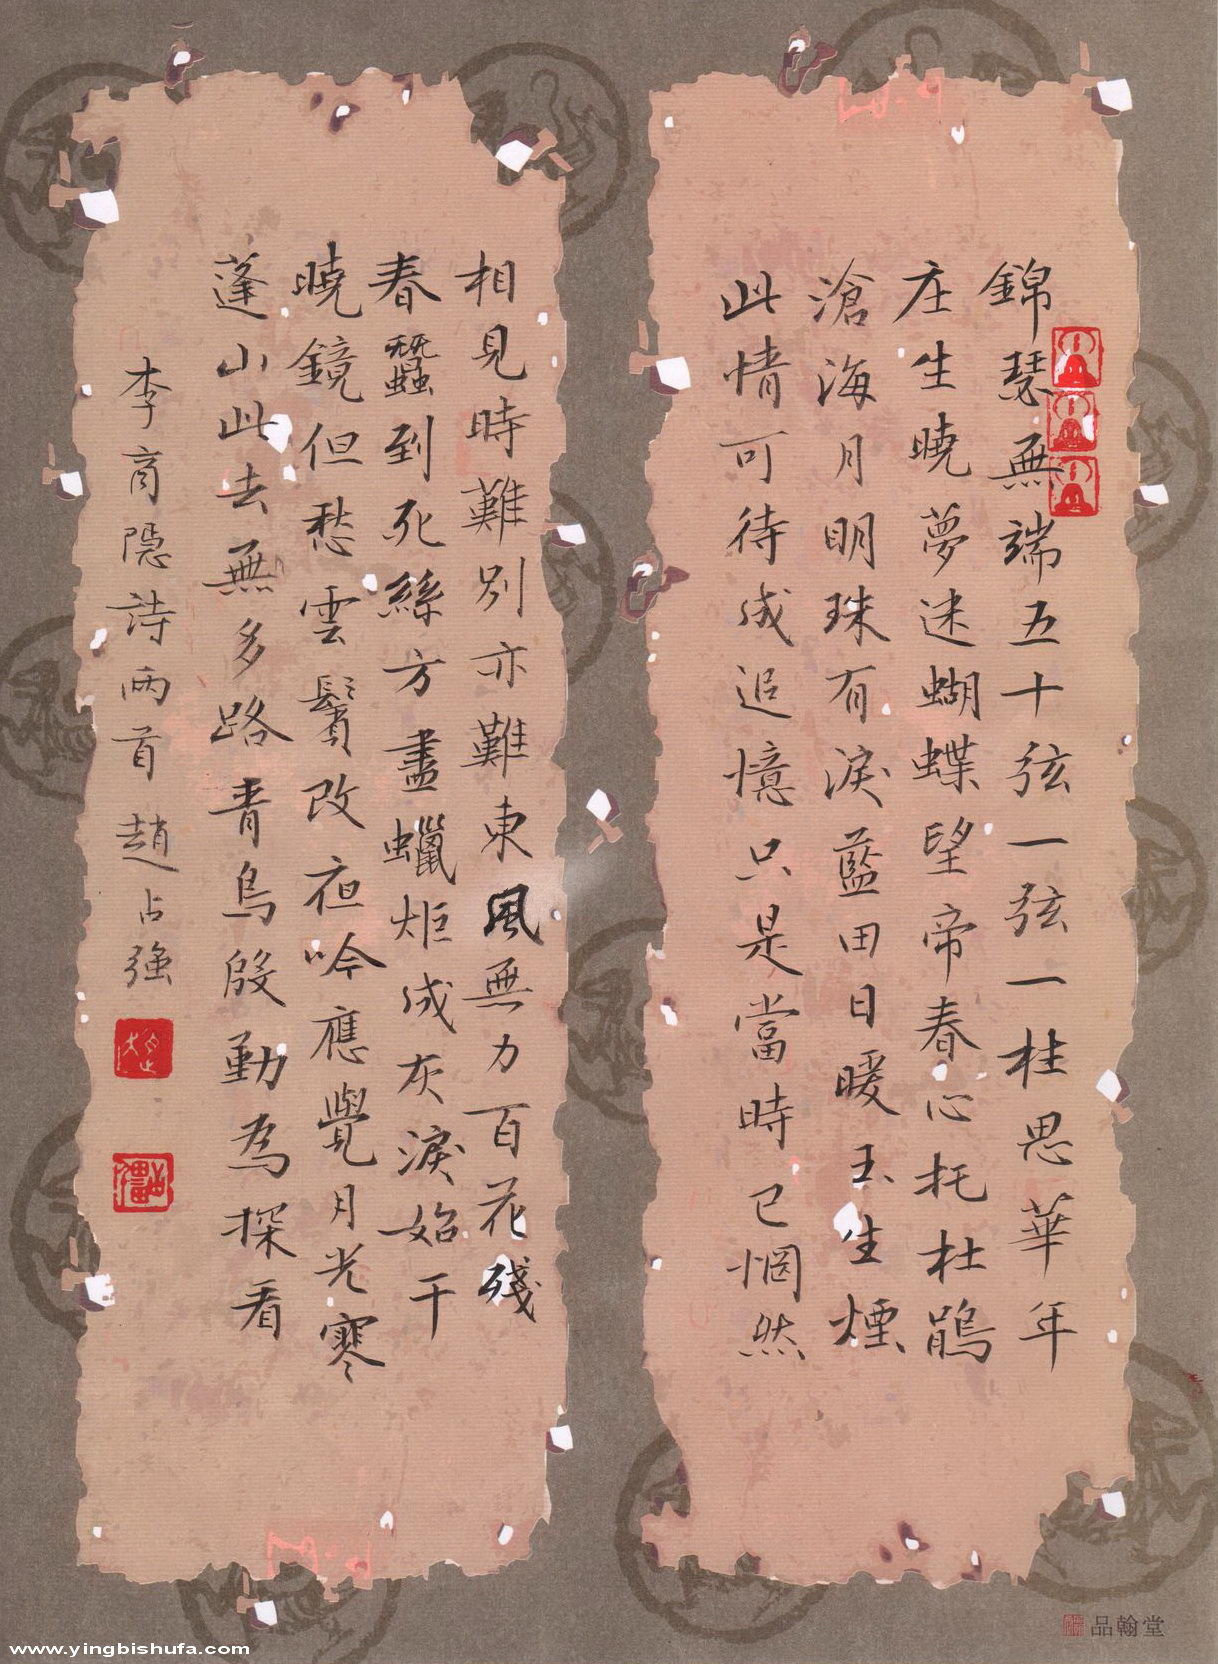 錦瑟無端五十弦一弦一柱思華年
庄生曉夢迷蝴蝶望帝春心托杜鵑
滄海月明珠有淚藍田日暖玉生煙
此情可待成追憶只是當時已惘然
相見時難別亦難東風無力百花殘
春蠶到死絲方盡蠟炬成灰淚始干
曉鏡但愁雲鬢改夜吟應覺月光寒
蓬山此去無多路青鳥殷勤為探看
李商隱詩兩首趙占強
品翰堂
www.yingbishufa.com